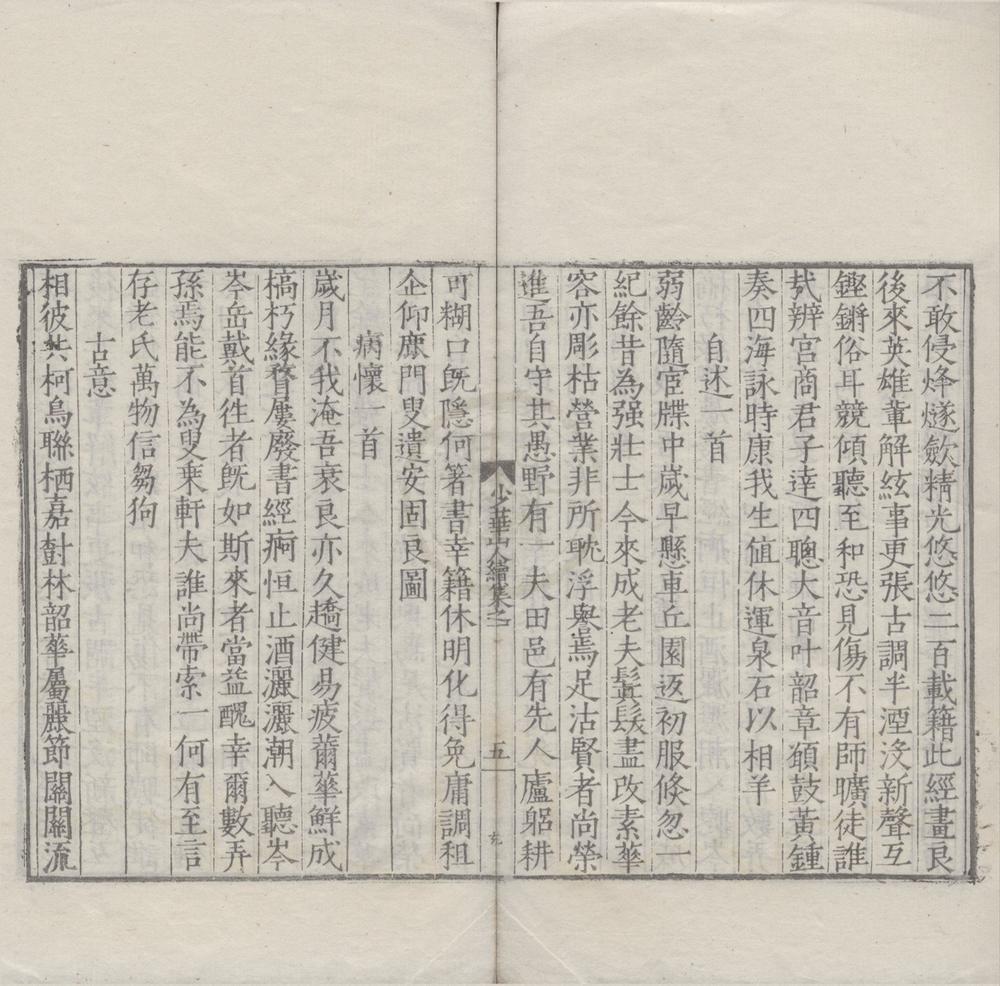 不敢侵烽燧斂精光悠悠二百載籍此經畫良
後來英雄輩解絃事更張古調半湮沒新聲互
鏗鏘俗耳競傾聽至和恐見傷不有師曠徒誰
哉辨宮商君子達四聰大音叶韶章頟鼓黃鍾
奏四海詠時康我生值休運泉石以相羊
自述一首
弱齡隨宦牒中歲早懸車丘園返初服倏忽一
紀餘昔為强壯士今來成老夫鬂髮盡改素華
容亦彫枯營業非所耽浮譽焉足沽賢者尚榮
進吾自守其愚野有一夫田邑有先人廬躬耕
少華山人續集卷二
五
可糊口既隱何著書幸籍休明化得免庸調租
企仰鹿門叟遺安固良圖
病懷一首
歲月不我淹吾衰良亦久趫健易疲薾華鮮成
槁朽緣瞀屢廢書經痾恒止酒灑灑潮入聽岑
岑岳戴首徃者既如斯來者當益醜幸爾數弄
孫焉能不為叟乘軒夫誰尚帶索一何有至言
存老氏萬物信芻狗
古意
相彼共柯鳥聯栖嘉樹林韶華屬麗節關關流